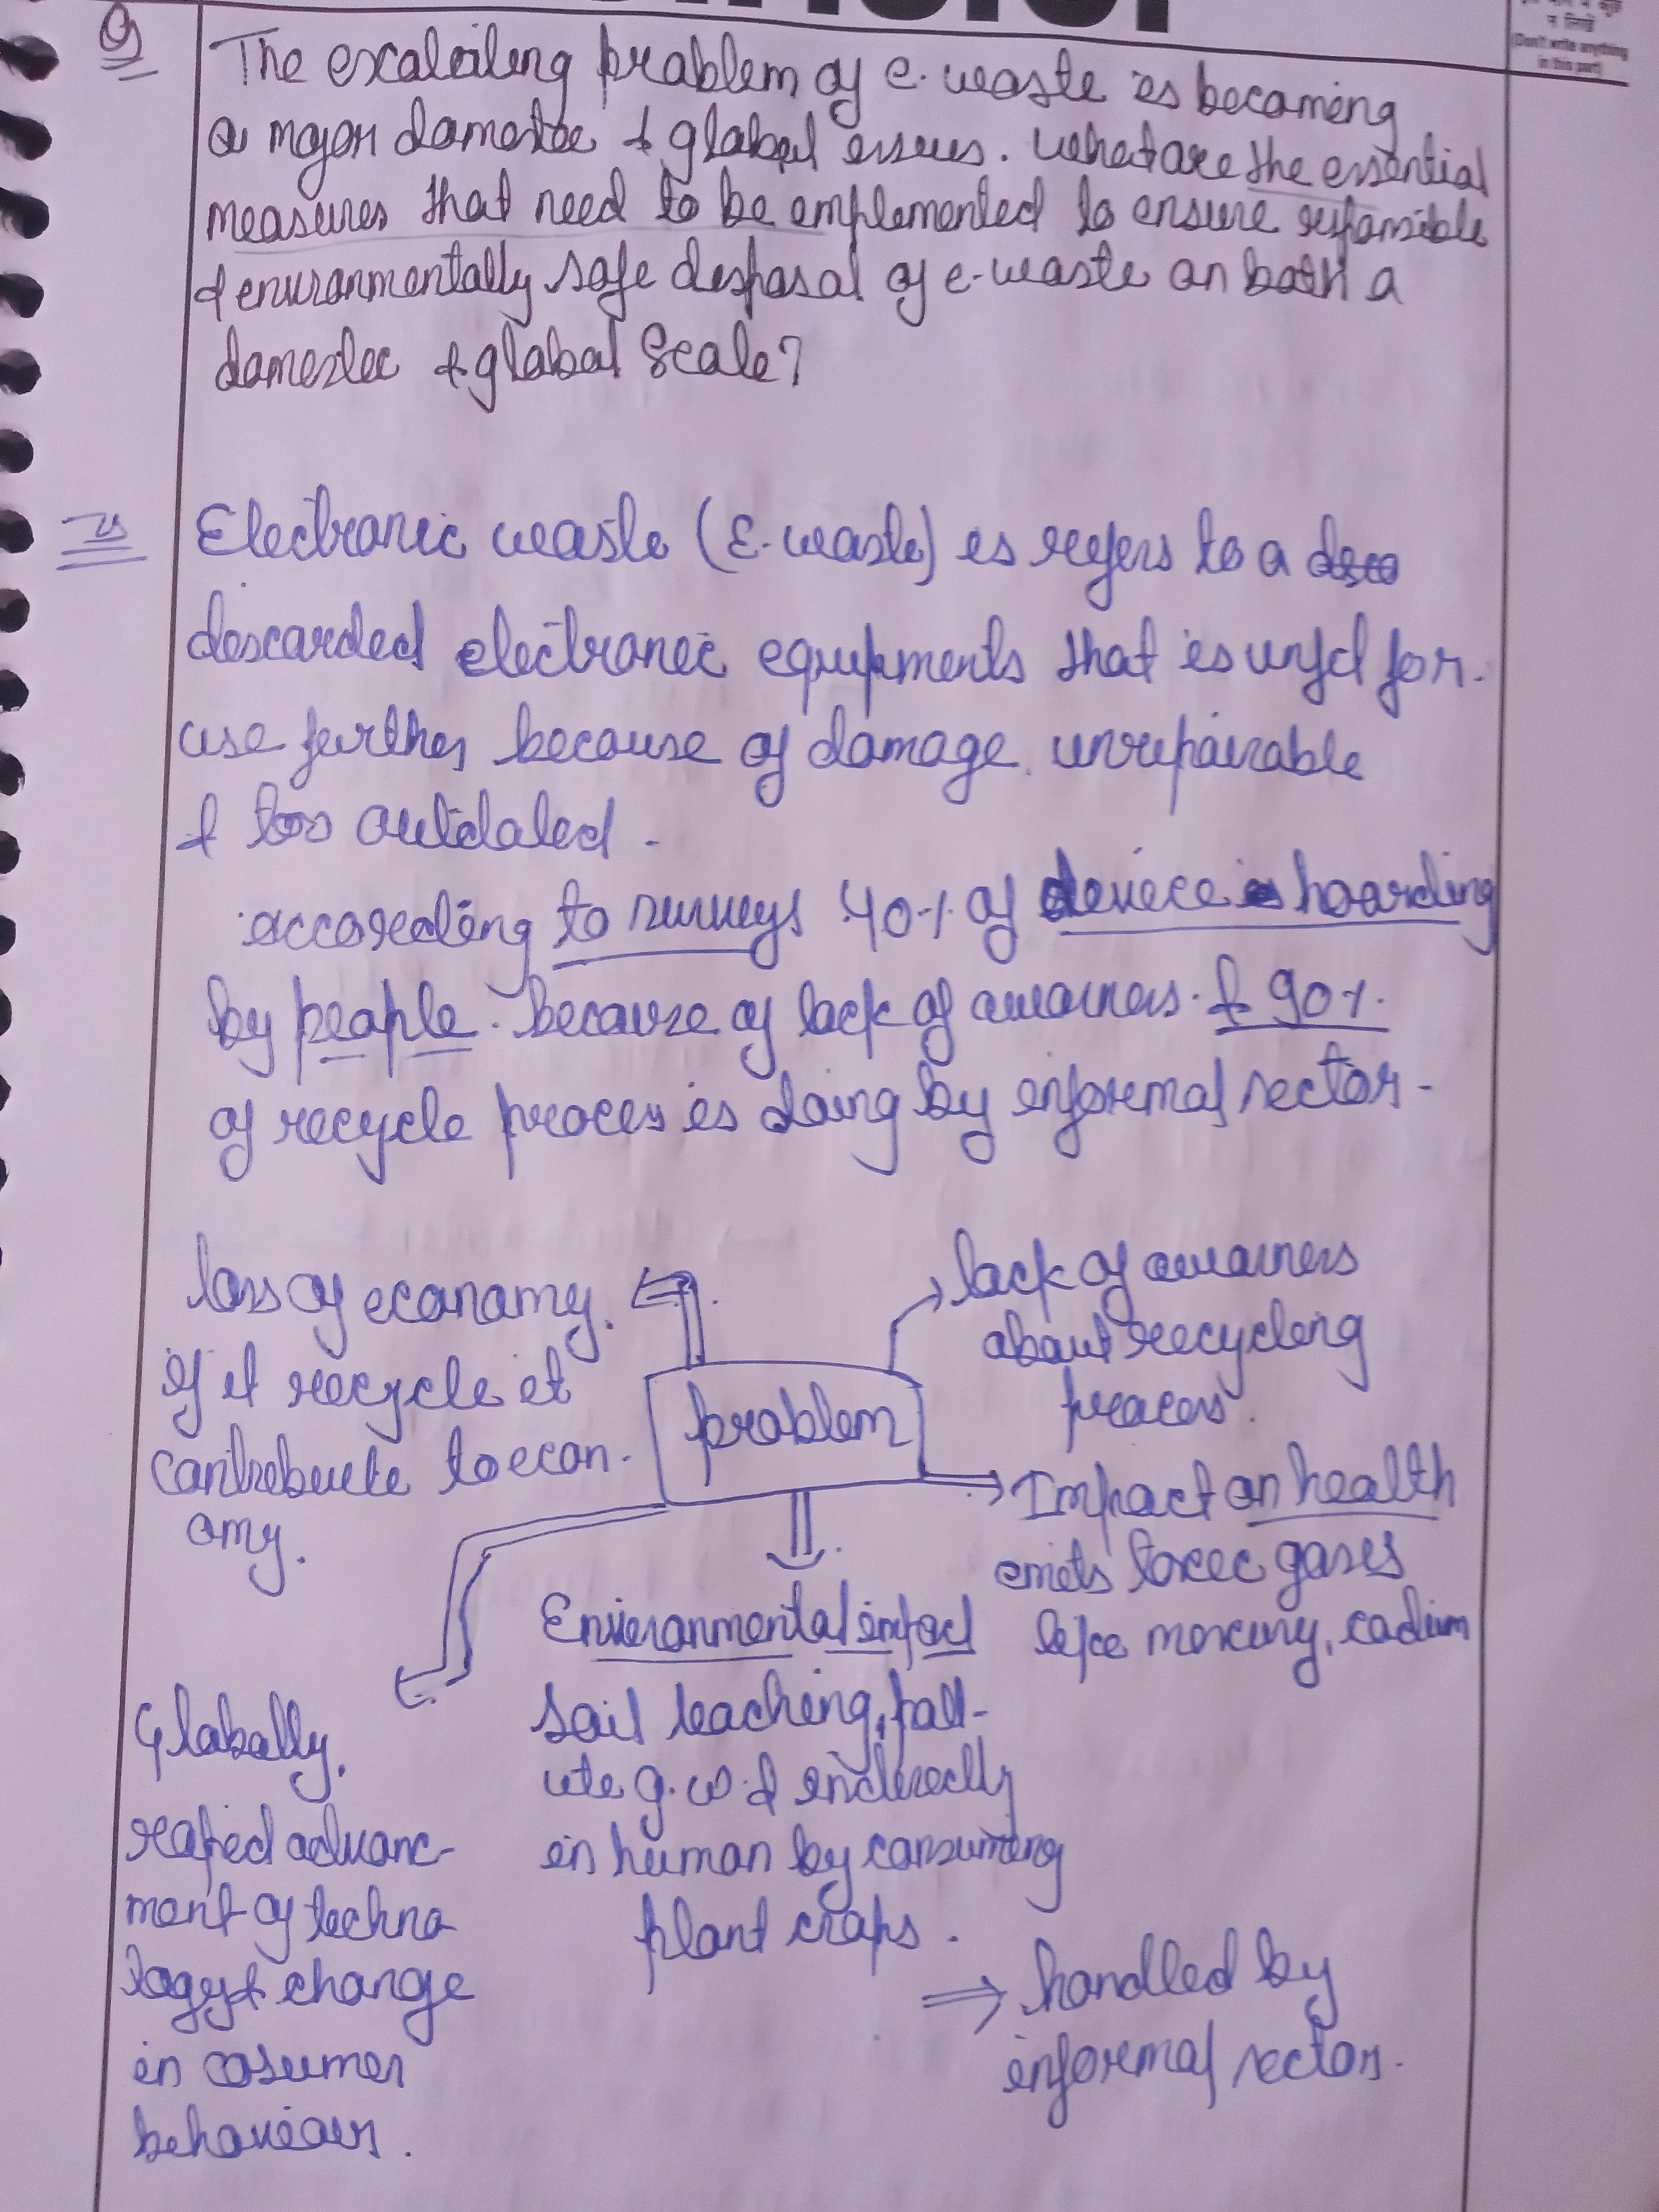 Q
The exalaiting problem of e-waste is becoming
a major domestic & global issues. What are the essential
measures that need to be implemented to ensure responsible
& environmentally safe disposal of e-waste on both a
domestic & global Scale?
Electronic waste (E-waste) is refers to a
discarded electronic equipments that is unfit for
use further because of damage, unrepairable
& too outdated.
according to surveys 40% of device hoarding
by people. because of lack of awarness. & 90%.
of recycle process is doing by informal sector.
loss of economy.
if it recycle it
contribuete to econ-
omy.
problem
lack of awarness
about recycling
process.
Impact on health
emits toxic gases
like mercury, cadium
Environmental impact
Soil leaching, poll-
ute g.w. & indirectly
in human by consuming
plant crops.
Globally.
rapied advanc-
ment of techno
logy & change
in cosumer
behaviour.
handled by
informal sector.
न लिखें
(Don't write anything
in this part)